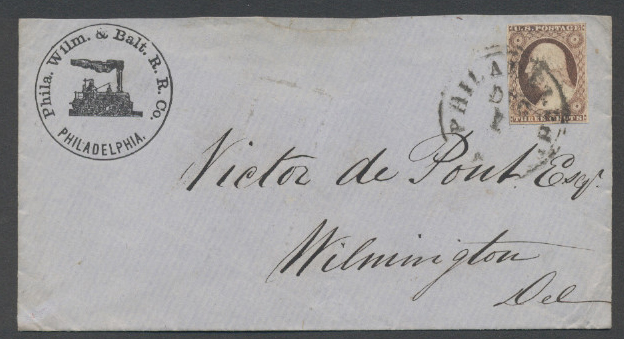 Phila. Wilm. & Balt. R. R. Co.
PHILADELPHIA.
U.S. POSTAGE
THREE CENTS
PHILA
Victor de Pont. Esqr.
Wilmington
Del